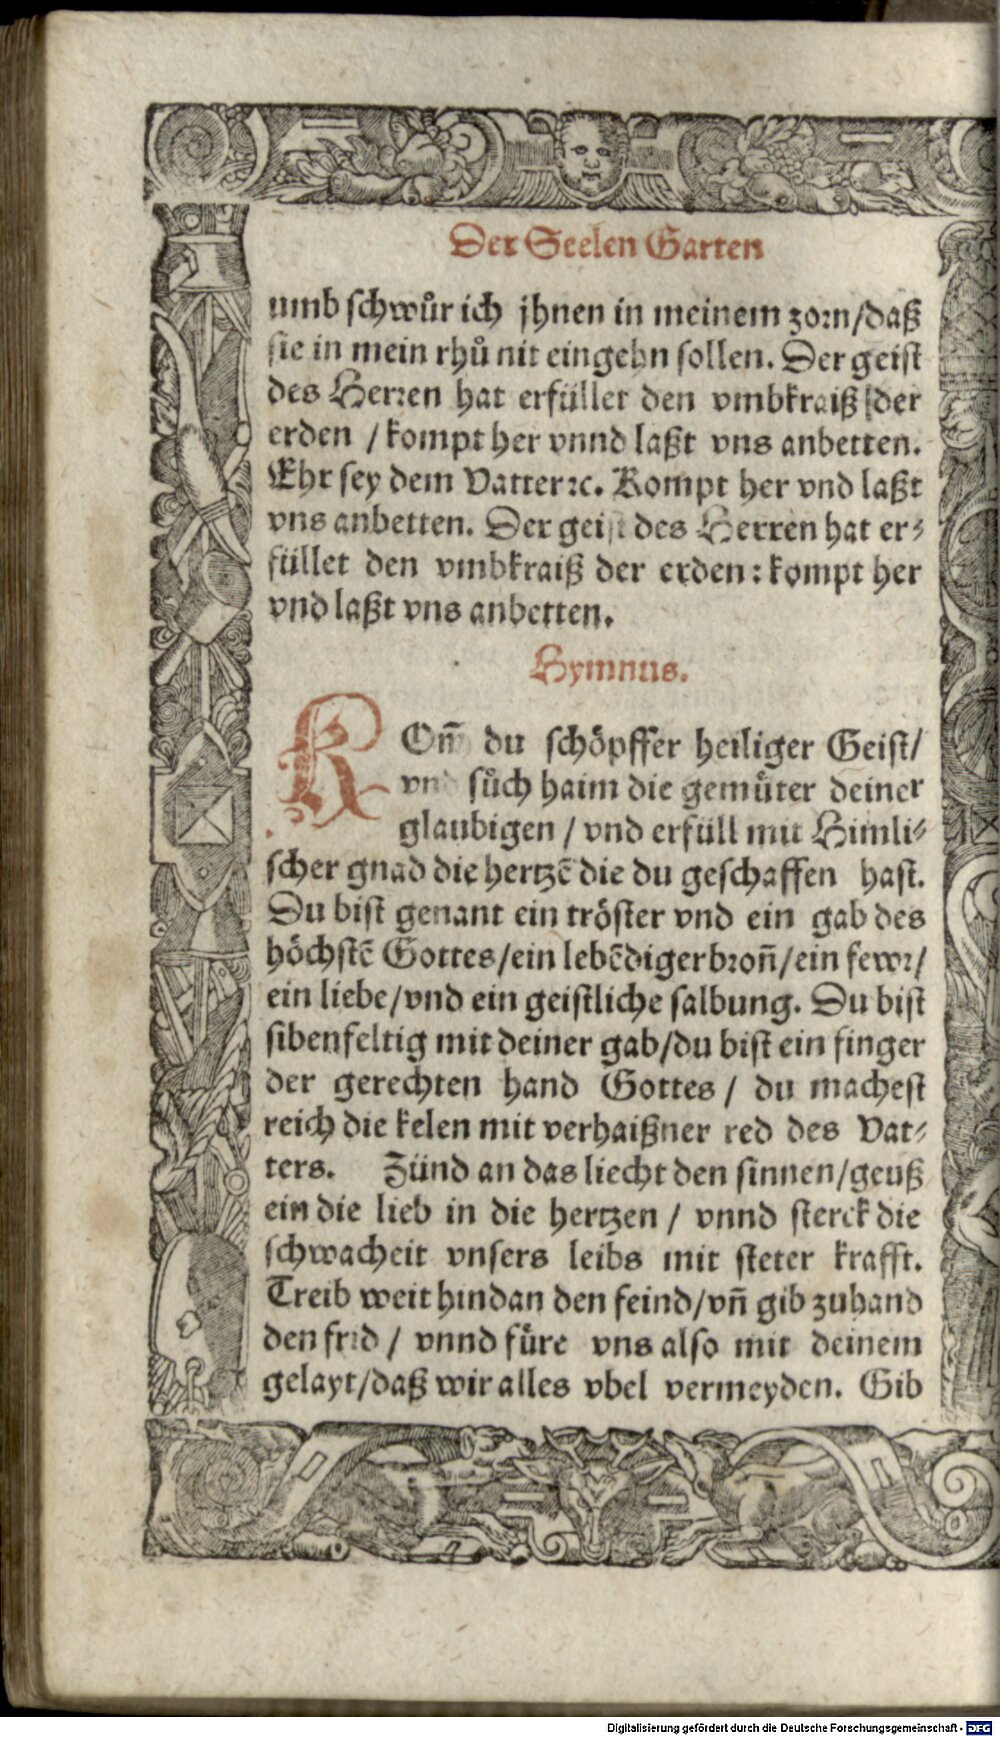 Der Seelen Garten
umb schwůr ich jhnen in meinem zorn/daß
sie in mein rhů nit eingehn sollen. Der geist
des Herren hat erfüllet den vmbkraiß der
erden / kompt her vnnd laßt vns anbetten.
Ehr sey dem Vatter ꝛc. Kompt her vnd laßt
vns anbetten. Der geist des Herren hat er⸗
füllet den vmbkraiß der erden: kompt her
vnd laßt vns anbetten.
Hymnus.
KOm̃ du schöpffer heiliger Geist/
vnd sůch haim die gemůter deiner
glaubigen / vnd erfüll mit Himli⸗
scher gnad die hertzẽ die du geschaffen hast.
Du bist genant ein tröster vnd ein gab des
höchstẽ Gottes/ein lebẽdiger bronñ/ein fewr/
ein liebe/vnd ein geistliche salbung. Du bist
sibenfeltig mit deiner gab/du bist ein finger
der gerechten hand Gottes / du machest
reich die kelen mit verhaißner red des Vat⸗
ters. Zünd an das liecht den sinnen/geuß
ein die lieb in die hertzen / vnnd sterck die
schwacheit vnsers leibs mit steter krafft.
Treib weit hindan den feind/vñ gib zuhand
den frid / vnnd fůre vns also mit deinem
gelayt/daß wir alles vbel vermeyden. Gib
Digitalisierung gefördert durch die Deutsche Forschungsgemeinschaft - DFG